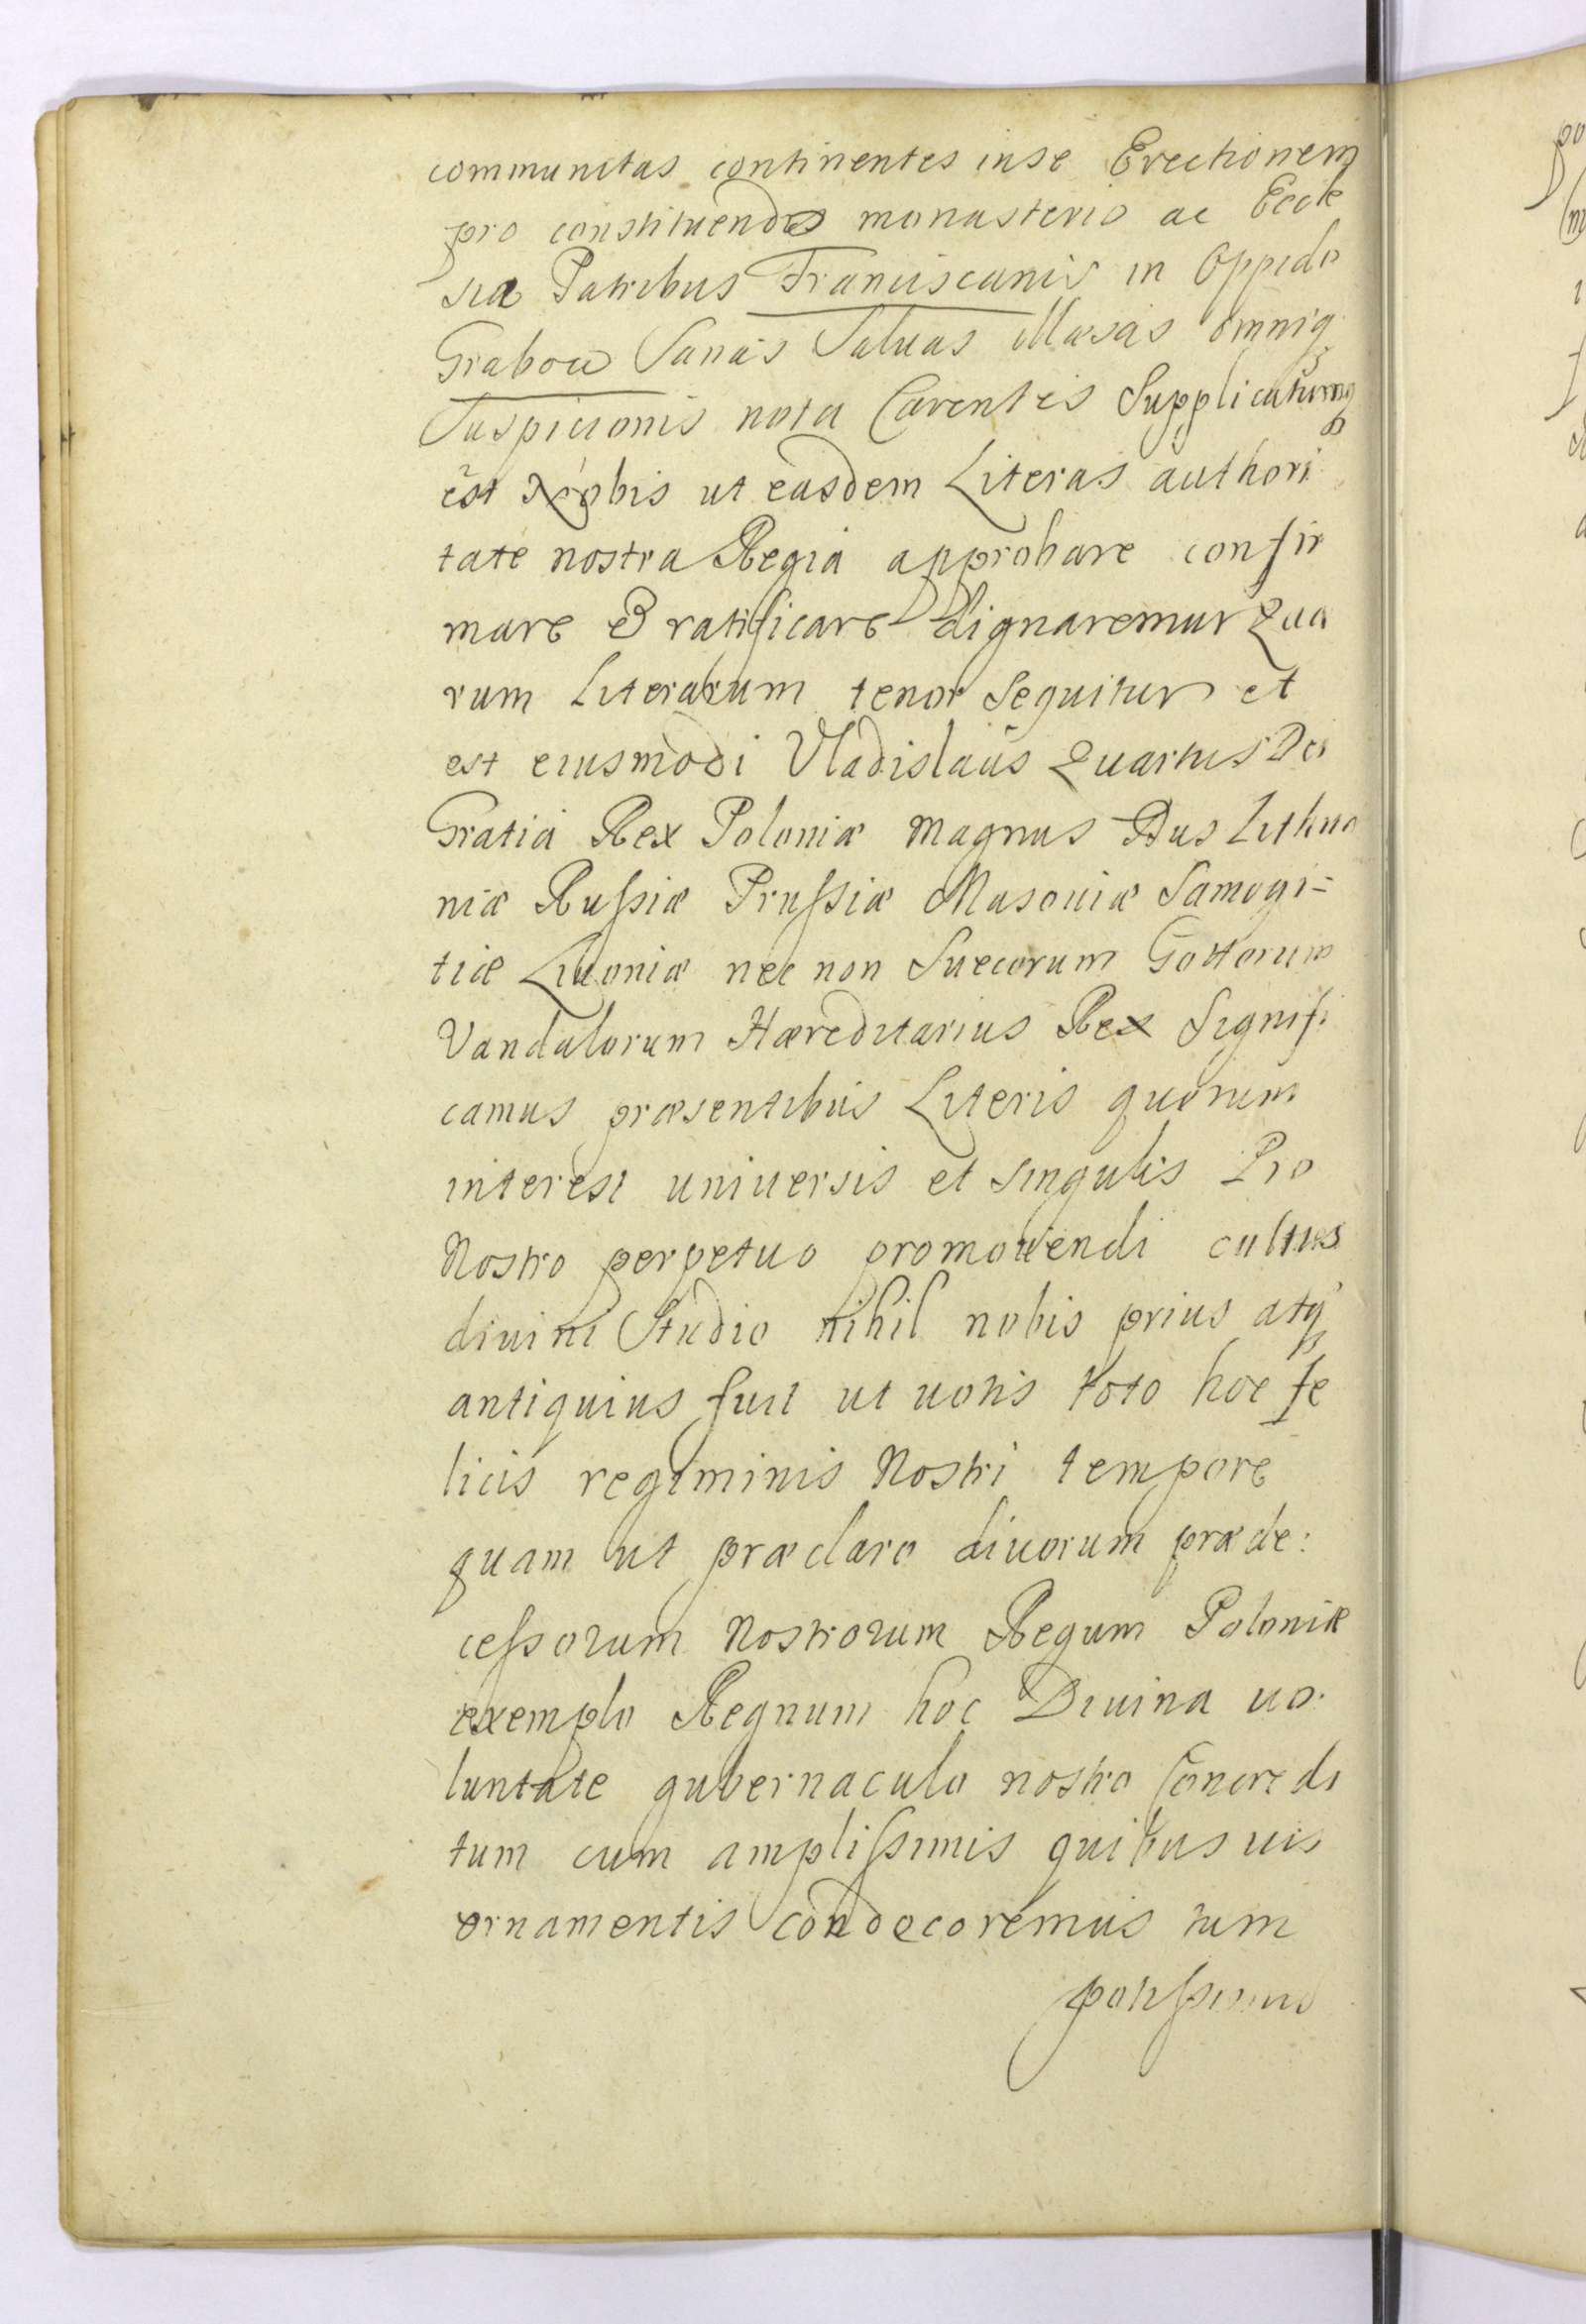 communitas continentes inse Erectionem
pro constituendo monasterio ac Eccle
sia Patribus Franciscanis in Oppido
Grabow Sanas Saluas illæsas omniq
Suspicionis nota Carentes Supplicatumq
est Nobis ut easdem Literas authori
tate nostra Regia approbare confir
mare & ratificare dignaremur Qua
rum Literarum tenor Sequitur et
est eiusmodi Vladislaus Quartus Dei
Gratia Rex Poloniæ Magnus Dus Lithua
niæ Rufsiæ Prufsiæ Masouiæ Samogi=
tiæ Liuoniæ nec non Suecorum Gottorum
Vandalorum Hæreditarius Rex Signifi
camus præsentibus Literis quorum
interest uniuersis et singulis Pro
Nostro perpetuo promouendi cultus
diuini Studio nihil nobis prius atq
antiquius fuit ut uotis toto hoc fe
licis regiminis Nostri tempore
quam ut præclaro diuorum præde:
cefsorum Nostrorum Regum Poloniæ
exemplo Regnum hoc Diuina uo.
luntate gubernaculo nostro Concredi
tum cum amplifsimis quibusuis
ornamentis condecoremus tum
potifsimum